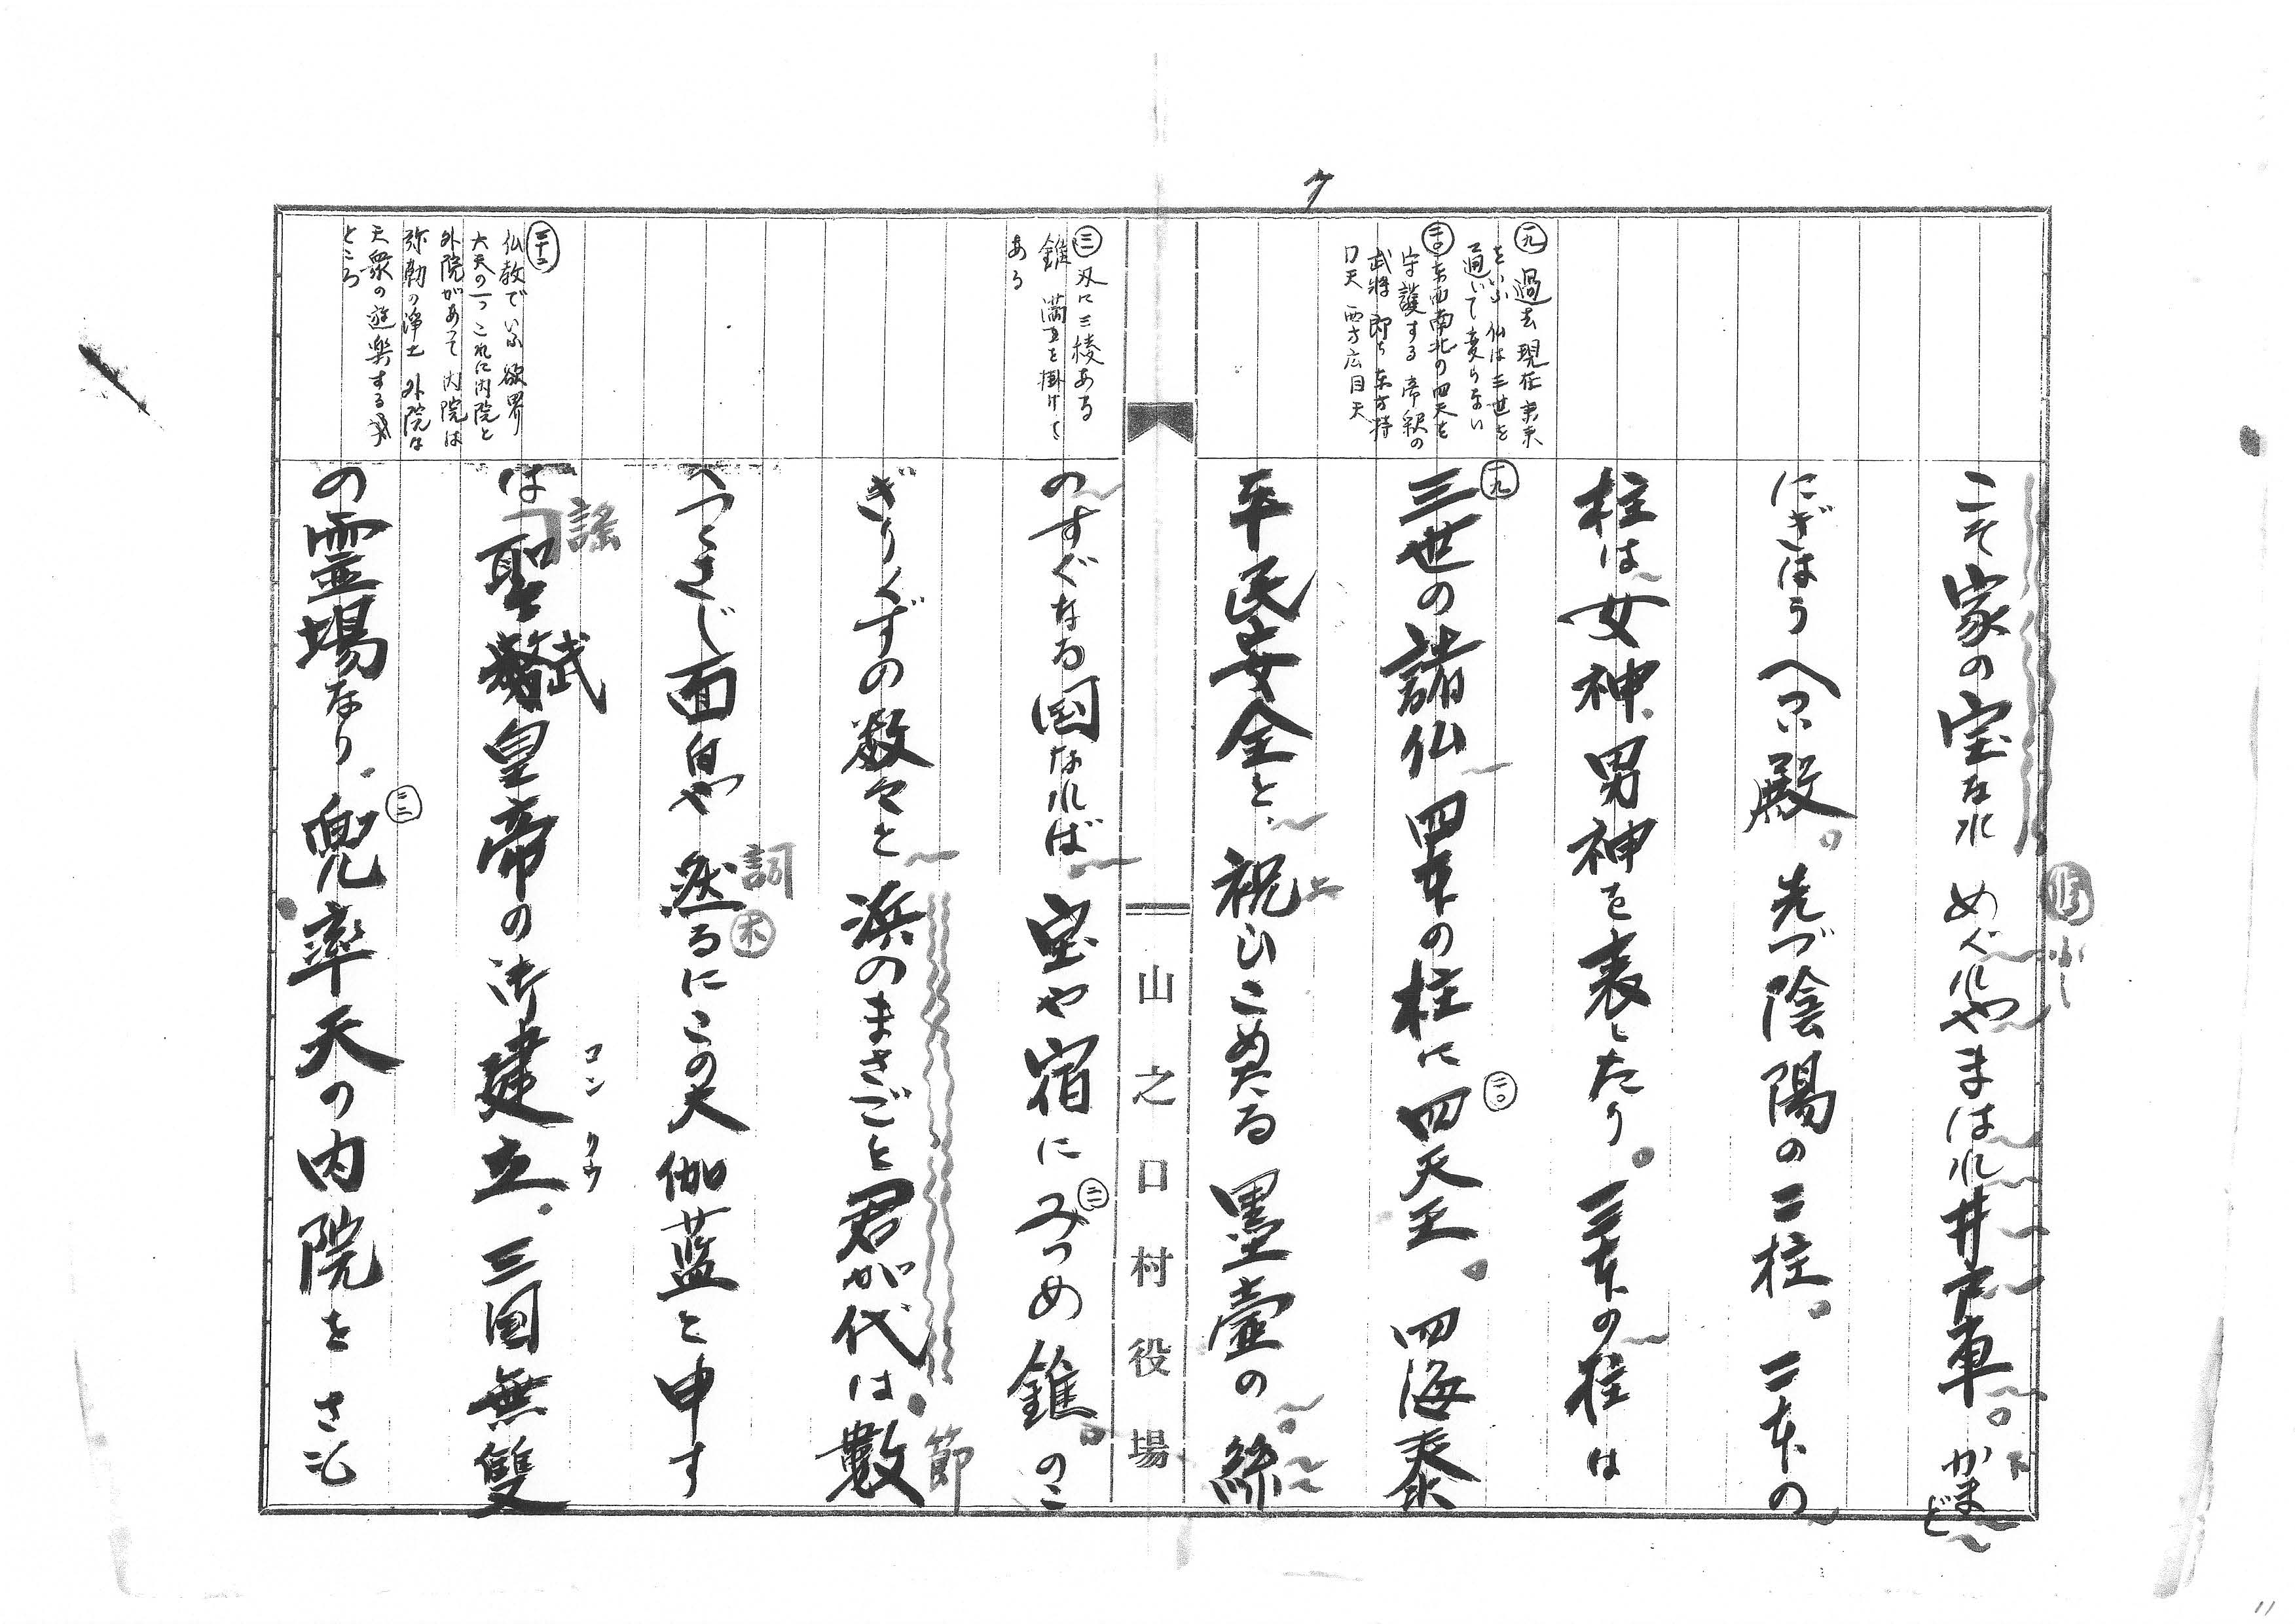 ク
⑲ 過去現在未来
をいふ 仏は三世を
通じて変らない
⑳ 東西南北の四天を
守護する 帝釈の
武将 即ち東方持
口天 西方広目天
こそ家の宝なれ めぐれやまはれ井戸車。かまど
にぎはうへつい殿。先づ陰陽の二柱。二本の
柱は女神、男神を表したり。三本の柱は
三世の諸仏 四本の柱に四天王。四海泰
平民安全と、祝ひこめたる墨壷の絲
山之口村役場
㉑ 刃に三稜ある
錐 満つを掛けて
ある
三十二
仏教でいふ欲界
六天の一つ これに内院と
外院があって 内院は
弥勒の浄土 外院は
天衆の遊楽する
ところ
のすぐなる国なれば。宝や宿にみつめ錐。のこ
ぎりくずの数々と 浜のまさごと君が代は。数
へつくさじ面白や 然るにこの大伽藍と申す
は 聖武皇帝の御建立。三国無雙
の霊場なり。兜率天の内院を さも
謡
詞
木
節
コン
リウ
修
上
下
11